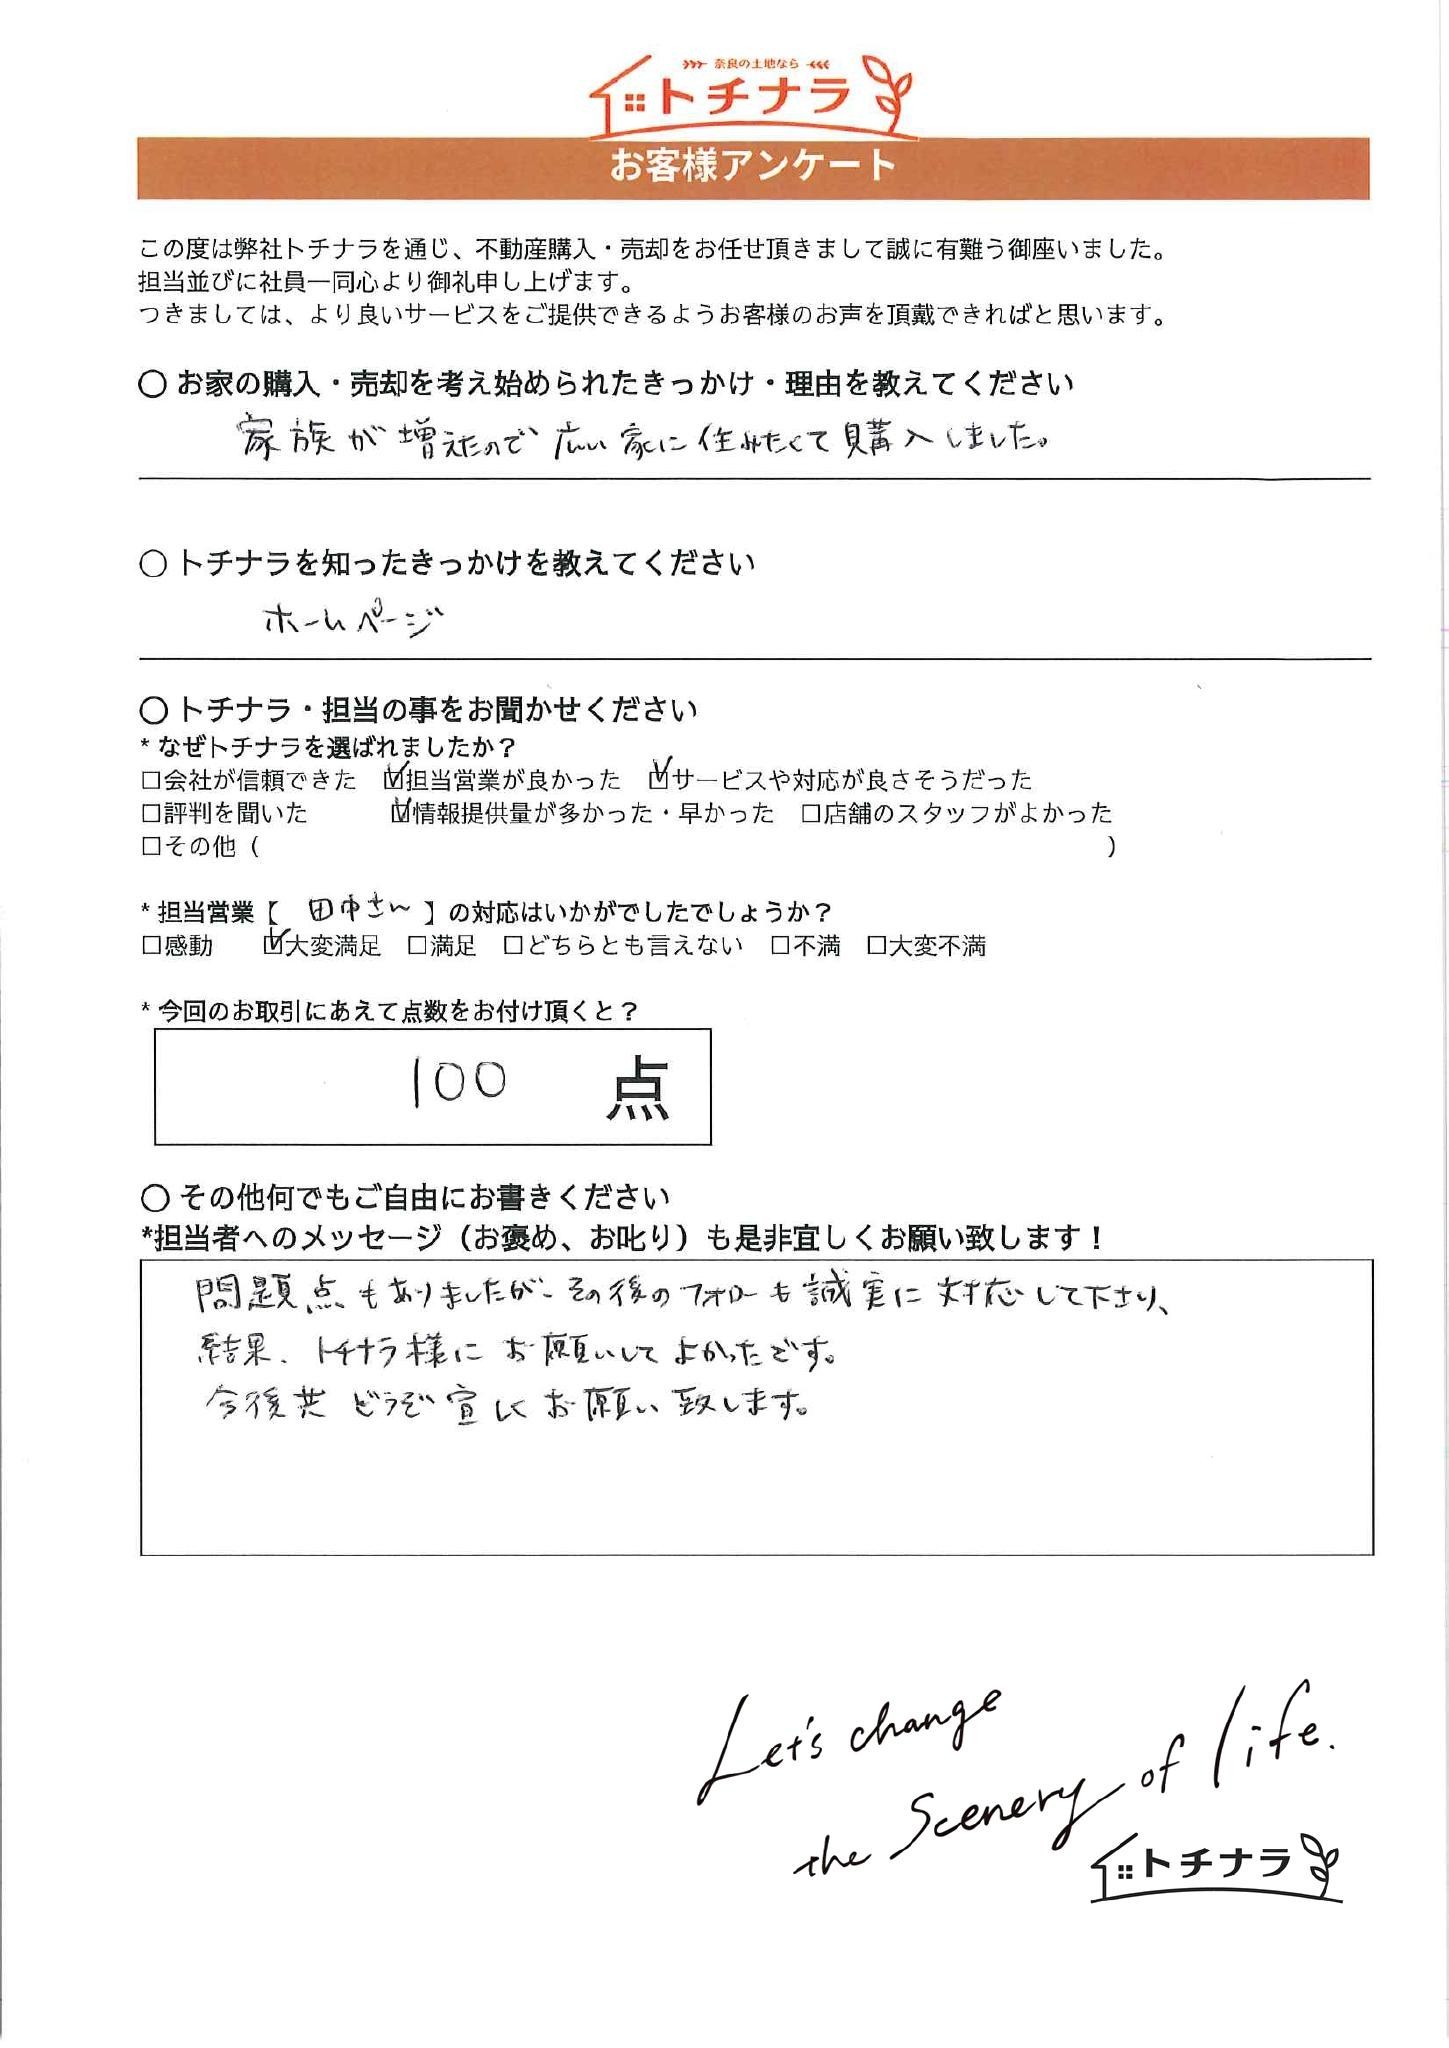 奈良の土地なら
トチナラ
お客様アンケート
この度は弊社トチナラを通じ、不動産購入・売却をお任せ頂きまして誠に有難う御座いました。
担当並びに社員一同心より御礼申し上げます。
つきましては、より良いサービスをご提供できるようお客様のお声を頂戴できればと思います。
○ お家の購入・売却を考え始められたきっかけ・理由を教えてください
家族が増えたので広い家に住みたくて購入しました。
○ トチナラを知ったきっかけを教えてください
ホームページ
○ トチナラ・担当の事をお聞かせください
* なぜトチナラを選ばれましたか？
□会社が信頼できた ☑担当営業が良かった ☑サービスや対応が良さそうだった
□評判を聞いた ☑情報提供量が多かった・早かった □店舗のスタッフがよかった
□その他（ ）
* 担当営業【 田中さん 】の対応はいかがでしたでしょうか？
□感動 ☑大変満足 □満足 □どちらとも言えない □不満 □大変不満
* 今回のお取引にあえて点数をお付け頂くと？
100 点
○ その他何でもご自由にお書きください
*担当者へのメッセージ（お褒め、お叱り）も是非宜しくお願い致します！
問題点もありましたが、その後のフォローも誠実に対応して下さり、
結果、トチナラ様にお願いしてよかったです。
今後共どうぞ宜しくお願い致します。
Let's change
the Scenery of life.
トチナラ